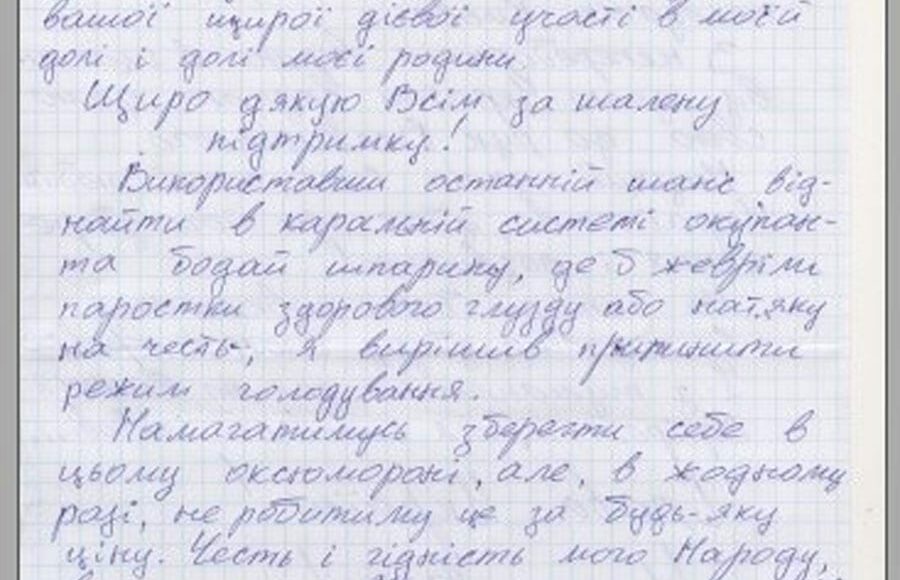 вашої щирої дієвої участі в моїй
долі і долі моєї родини.
Щиро дякую Всім за шалену
підтримку!
Використавши останній шанс від-
найти в каральній системі окупан-
та бодай шпарину, де б жевріли
паростки здорового глузду або натяку
на честь, я вирішив припинити
режим голодування.
Намагатимусь зберегти себе в
цьому оксюмороні, але, в жодному
разі, не робитиму це за будь-яку
ціну. Честь і гідність мого Народу,